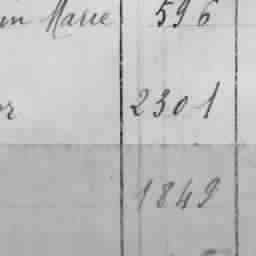 Marie 596
2301
1849